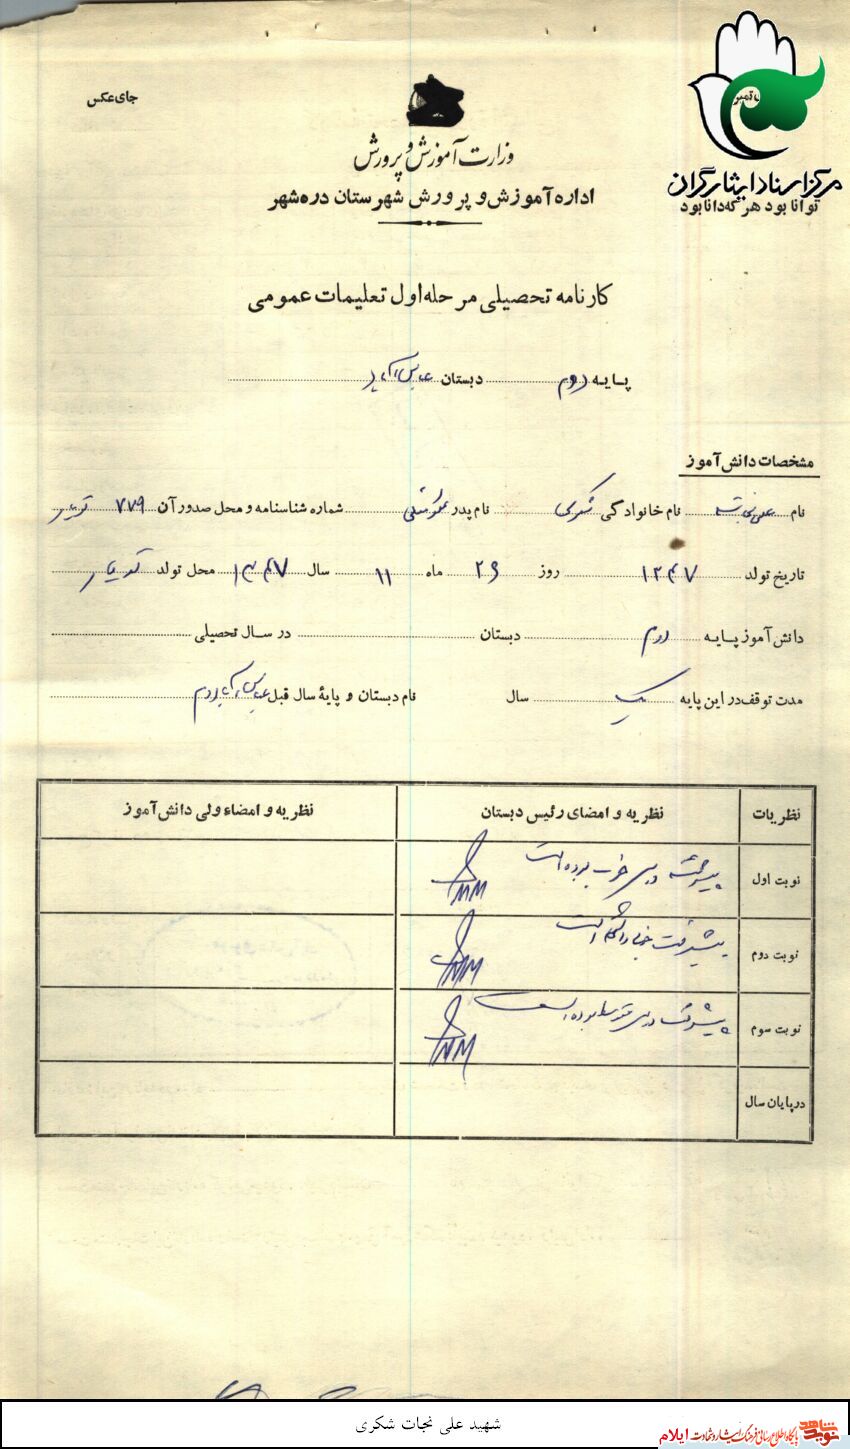 جای عکس
مرکز اسناد ایثارگران
توانا بود هر که دانا بود
وزارت آموزش و پرورش
اداره آموزش و پرورش شهرستان دره شهر
کارنامه تحصیلی مرحله اول تعلیمات عمومی
پایه دوم دبستان
مشخصات دانش آموز
نام نام خانوادگی شکری نام پدر شماره شناسنامه و محل صدور آن ۷۷۹
تاریخ تولد ۱۳۴۷ روز ۲۶ ماه ۱۱ سال ۱۳۴۷ محل تولد
دانش آموز پایه دوم دبستان در سال تحصیلی
مدت توقف در این پایه یک سال نام دبستان و پایهٔ سال قبل
نظریات نظریه و امضای رئیس دبستان نظریه و امضاء ولی دانش آموز
نوبت اول پیشرفت درسی خوب بوده است
نوبت دوم پیشرفت است
نوبت سوم پیشرفت درسی متوسط بوده است
در پایان سال
شهید علی نجات شکری
نوید شاهد پایگاه اطلاع رسانی فرهنگ ایثار و شهادت ایلام